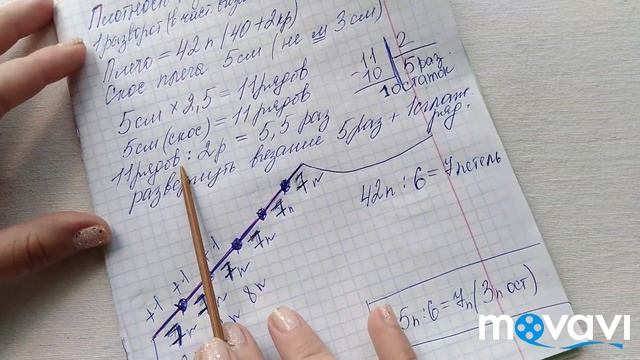 Плотность
1 разворот (1 част.
Плечо = 42п (40+2кр)
Скос плеча 5см (не м 3см)
5см × 2,5 = 11рядов
5см (скос) = 11 рядов
11рядов : 2р = 5,5 раз
развернуть вязание 5раз + 1
ряд.
11 2
-10 5 раз.
1 остаток
42п : 6 = 7 петель
7п
7п
7п
+1 7п
+1 7п 8п
+1 7п
5п : 6 = 7п (3п ост)
movavi